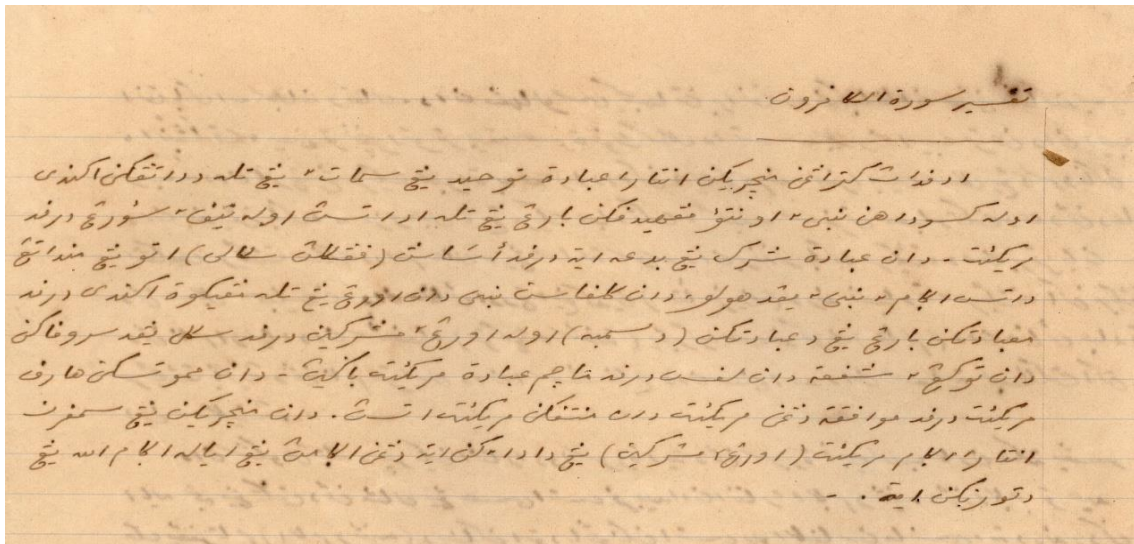 تفسير سورة الكافرون
اد فدات كتراڠن منچريكن انتارا عبادة توحيد يڠ سمات٢ يڠ تله دداتڠكن اكندي
اوله سودا هن نبي٢ اونتوق مڠهيدفكن بارڠ يڠ تله ادا اتسڽ اوله سؤرڠ درفد
مريكئت. دان عبادة شرك يڠ بدعه ايت درفد أساسڽ اتو يڠ منداتڠ
داتس اݢام٢ نبي٢ يڠد هولو، دان نبي دان اورڠ يڠ تله مڠيكوة اكندي درفد
مڠبادتكن بارڠ يڠ دعبادتكن (دسمبه) اوله اورڠ٢ مشركين درفد سكلين يڠد سروفاكن
دان توكڠ٢ دان درفد ماچم عبادة مريكئت باݢين٢ - دان مموتسكن هارف
مريكئت درفد موافقة دڠن مريكئت دان مريكئت اتسڽ. دان منچريكن يڠ سمفرن
انتارا اݢام مريكئت (اورڠ٢ مشركين) يڠ دادا٢كن ايت دڠن اݢامڽ يڠ اياله اݢام الله يڠ
دتورنكن ايت. -